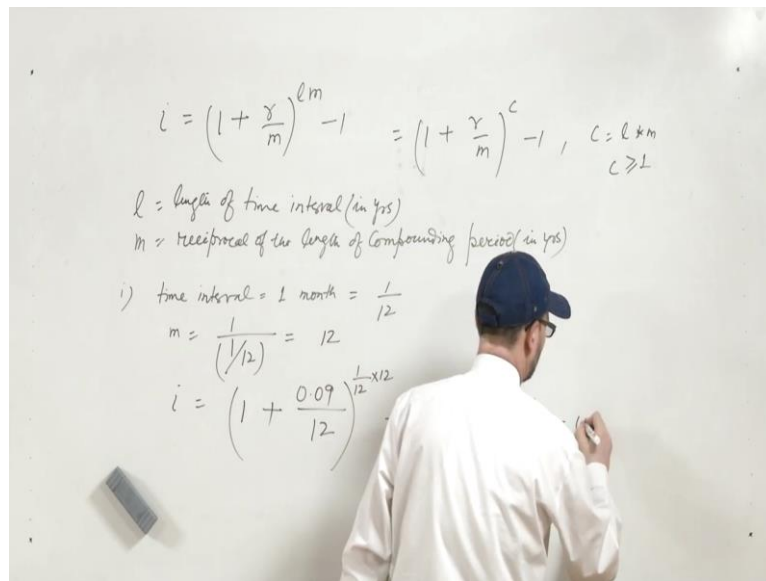 i = (1 + r/m)^{lm} - 1 = (1 + r/m)^c - 1, c = l * m
c ⩾ 1
l = length of time interval (in yrs)
m = reciprocal of the length of Compounding period (in yrs)
i) time interval = 1 month = 1/12
m = 1/(1/12) = 12
i = (1 + 0.09/12)^{1/12 × 12} -